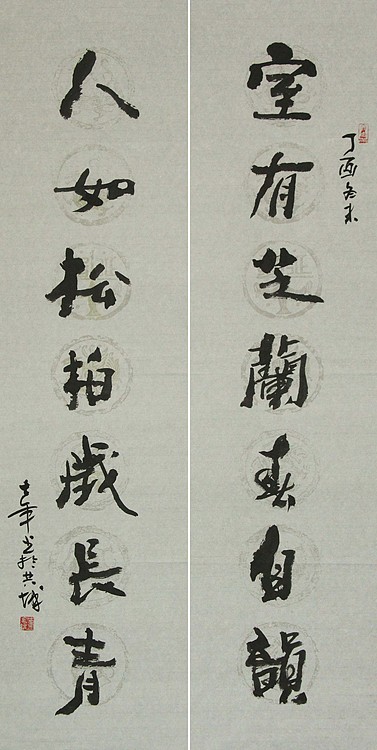 室有芝蘭春自韻
丁酉冬末
人如松柏歲長青
书於共城